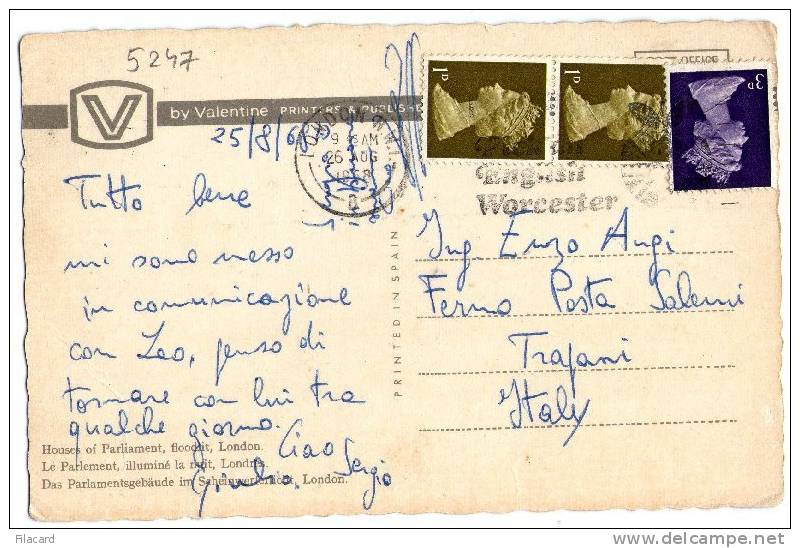 5247
V
by Valentine PRINTERS & PUBLISHE
25/8/68
LONDON
9 AM
26 AUG
1968
1D
1D
3D
OFFICE
English
Worcester
Tutto bene
mi sono messo
in comunicazione
con Leo, penso di
tornare con lui tra
qualche giorno.
Ciao
Sergio
Giulia
PRINTED IN SPAIN
Ing. Enzo Angi
Fermo Posta Salemi
Trapani
Italy
Houses of Parliament, floodlit, London.
Le Parlement, illuminé la nuit, Londres.
Das Parlamentsgebäude im Scheinwerferlicht, London.
Filacard
www.delcampe.net